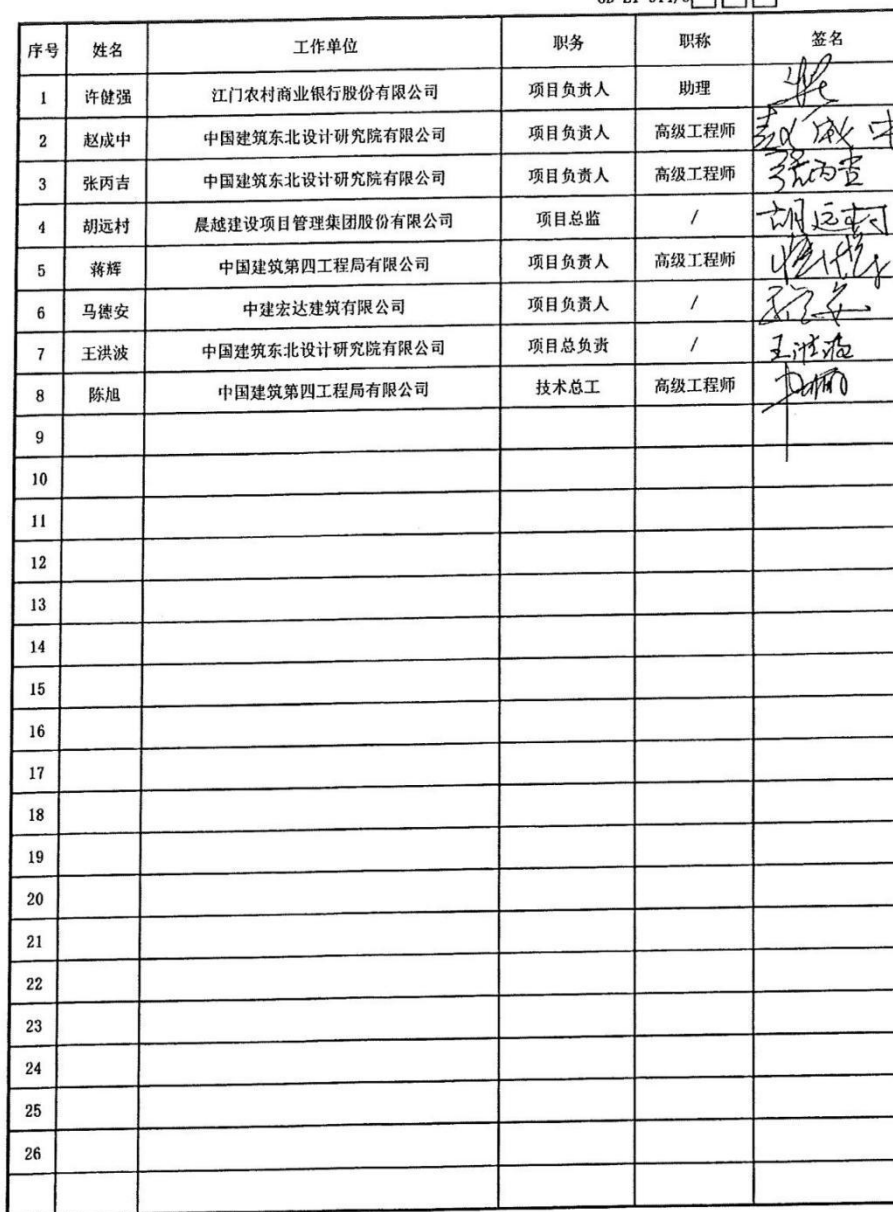 序号 姓名 工作单位 职务 职称 签名
1 许健强 江门农村商业银行股份有限公司 项目负责人 助理
2 赵成中 中国建筑东北设计研究院有限公司 项目负责人 高级工程师 赵成中
3 张丙吉 中国建筑东北设计研究院有限公司 项目负责人 高级工程师 张丙吉
4 胡远村 晨越建设项目管理集团股份有限公司 项目总监 / 胡远村
5 蒋辉 中国建筑第四工程局有限公司 项目负责人 高级工程师
6 马德安 中建宏达建筑有限公司 项目负责人 /
7 王洪波 中国建筑东北设计研究院有限公司 项目总负责 / 王洪波
8 陈旭 中国建筑第四工程局有限公司 技术总工 高级工程师
9
10
11
12
13
14
15
16
17
18
19
20
21
22
23
24
25
26